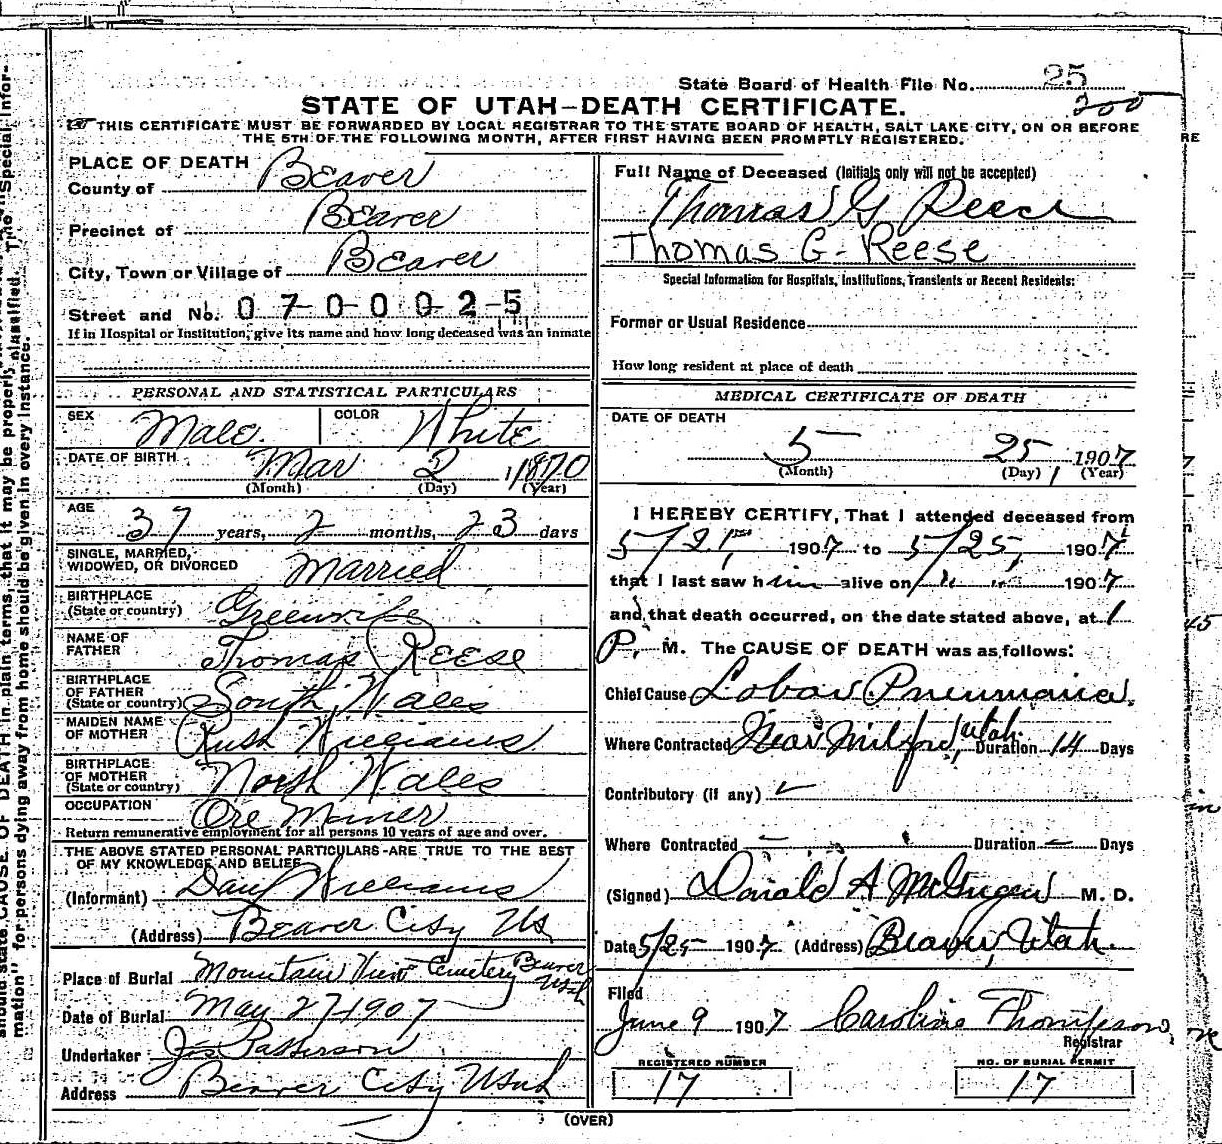 State Board of Health File No. 25
200
STATE OF UTAH—DEATH CERTIFICATE.
THIS CERTIFICATE MUST BE FORWARDED BY LOCAL REGISTRAR TO THE STATE BOARD OF HEALTH, SALT LAKE CITY, ON OR BEFORE
THE 5TH OF THE FOLLOWING MONTH, AFTER FIRST HAVING BEEN PROMPTLY REGISTERED.
PLACE OF DEATH
County of Beaver
Precinct of Beaver
City, Town or Village of Beaver
Street and No. 0700025
If in Hospital or Institution, give its name and how long deceased was an inmate
PERSONAL AND STATISTICAL PARTICULARS
SEX Male. COLOR White
DATE OF BIRTH Mar 2 1870
(Month) (Day) (Year)
AGE
37 years, 2 months, 23 days
SINGLE, MARRIED,
WIDOWED, OR DIVORCED Married
BIRTHPLACE
(State or country) Greenville
NAME OF
FATHER Thomas Reese
BIRTHPLACE
OF FATHER
(State or country) South Wales
MAIDEN NAME
OF MOTHER Ruth Williams
BIRTHPLACE
OF MOTHER
(State or country) North Wales
OCCUPATION Ore Mainer
Return remunerative employment for all persons 10 years of age and over.
THE ABOVE STATED PERSONAL PARTICULARS ARE TRUE TO THE BEST
OF MY KNOWLEDGE AND BELIEF
(Informant) Williams
(Address) Beaver City
Place of Burial Mountain View Cemetery Beaver
Utah
Date of Burial May 27 1907
Undertaker Jos Patterson
Address Beaver City Utah
Full Name of Deceased (Initials only will not be accepted)
Thomas G Reece
Thomas G. Reese
Special Information for Hospitals, Institutions, Transients or Recent Residents:
Former or Usual Residence
How long resident at place of death
MEDICAL CERTIFICATE OF DEATH
DATE OF DEATH
5 25, 1907
(Month) (Day) (Year)
I HEREBY CERTIFY, That I attended deceased from
5/21st 1907 to 5/25, 1907
that I last saw him alive on " " 1907
and that death occurred, on the date stated above, at 1
P. M. The CAUSE OF DEATH was as follows:
Chief Cause Lobar Pneumonia.
Where Contracted Near Milford, Utah. Duration 14 Days
Contributory (if any)
Where Contracted — Duration — Days
(Signed) Donald A McGregor M. D.
Date 5/25 1907 (Address) Beaver, Utah.
Filed
June 9 1907 Caroline Thompson,
Registrar
REGISTERED NUMBER NO. OF BURIAL PERMIT
17 17
(OVER)